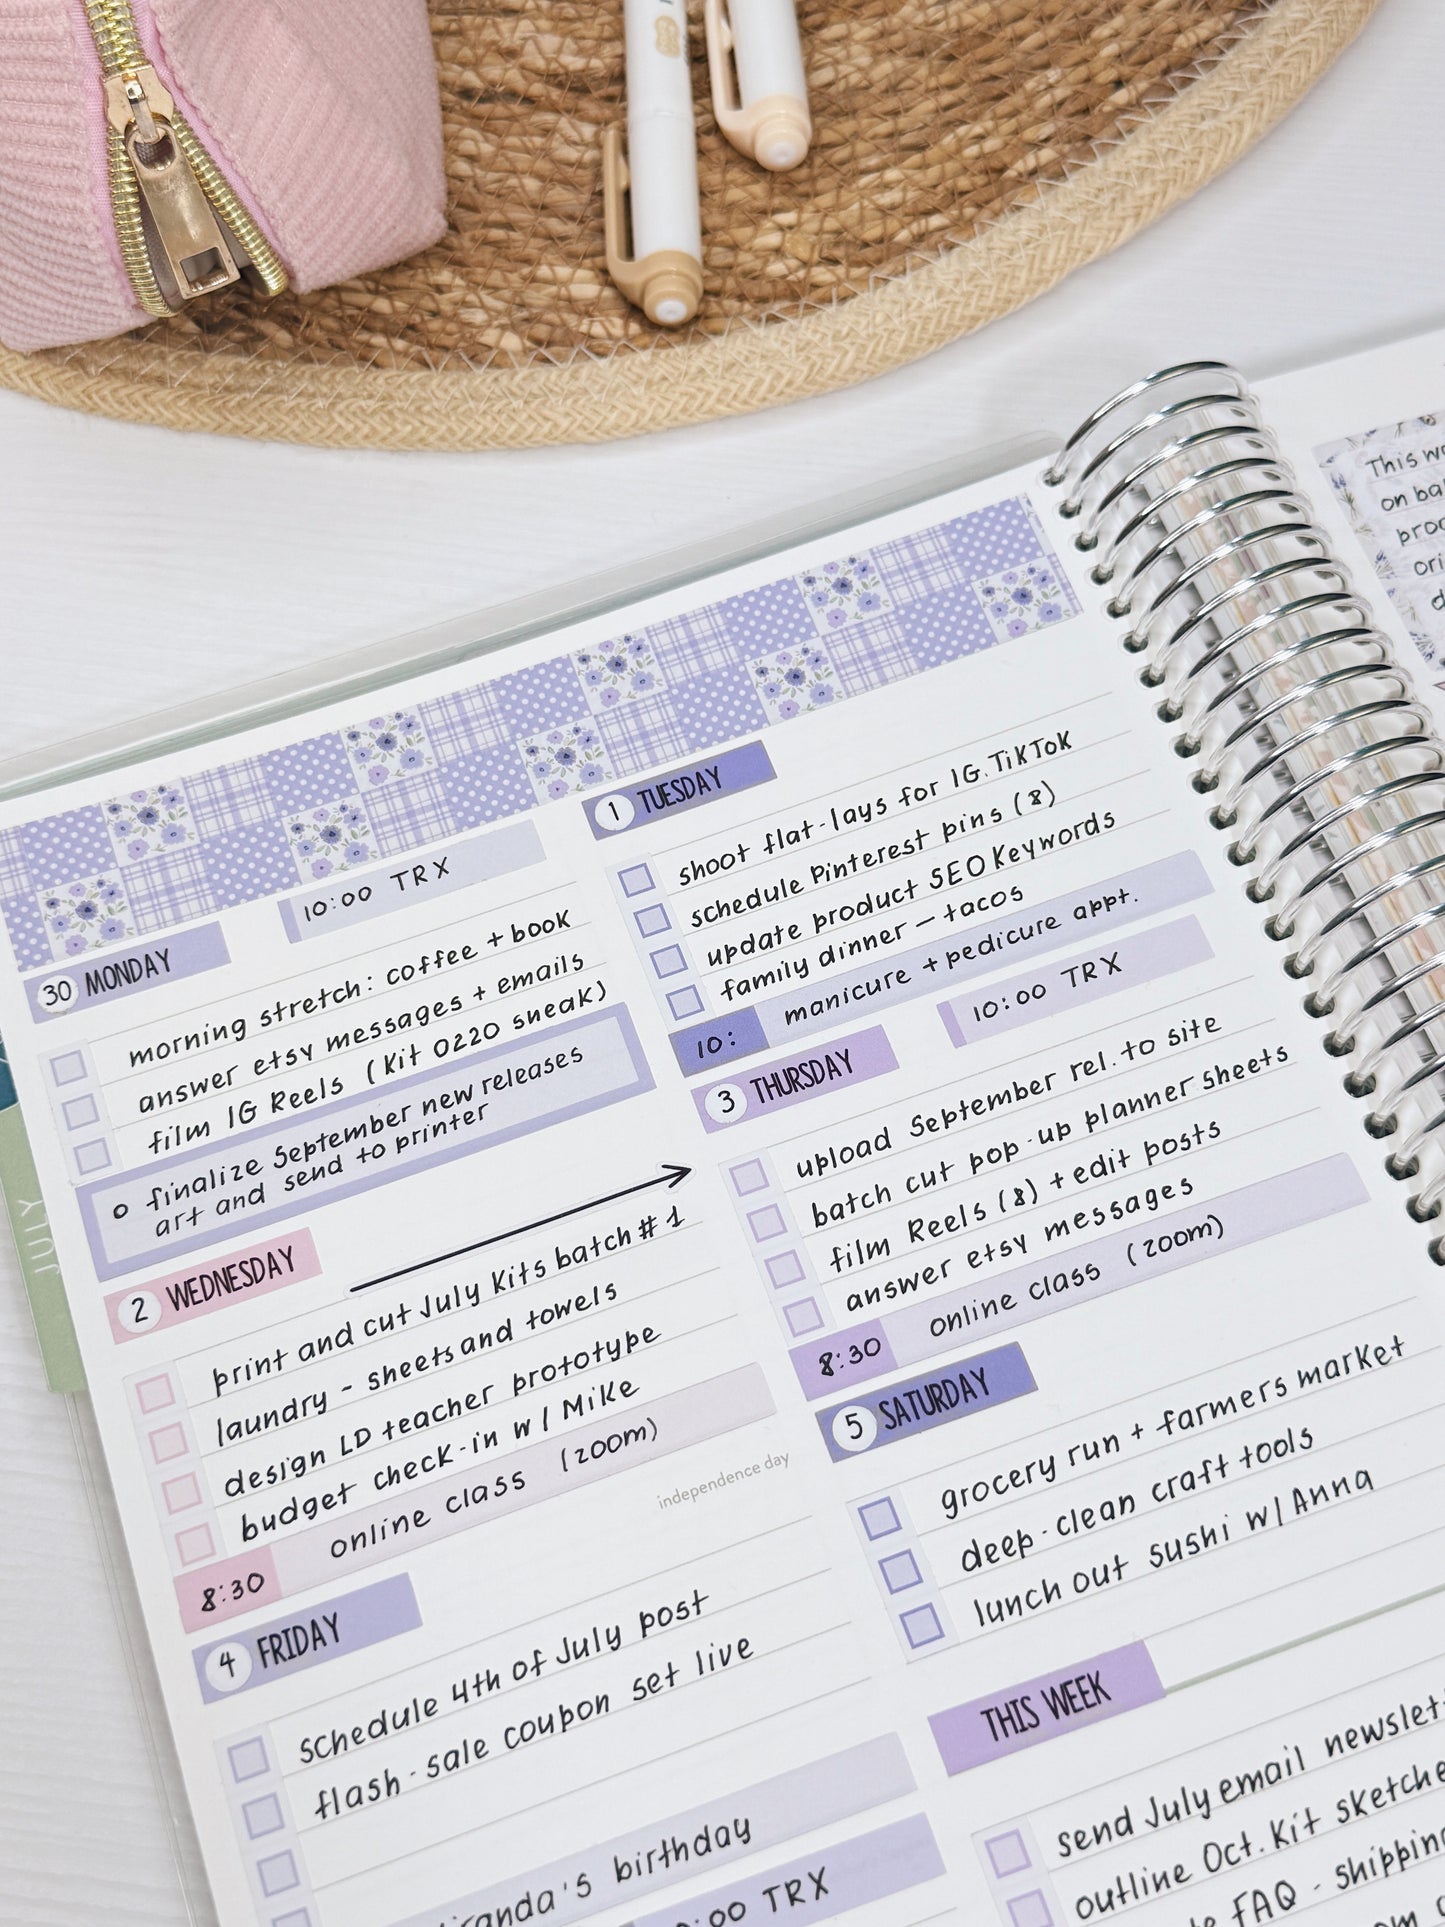 10:00 TRX
30 MONDAY
morning stretch: coffee + book
answer etsy messages + emails
film IG Reels (Kit 0220 sneak)
finalize September new releases
art and send to printer
1 TUESDAY
shoot flat-lays for IG.TikTok
schedule Pinterest pins (8)
update product SEO Keywords
family dinner - tacos
10: manicure + pedicure appt.
2 WEDNESDAY
print and cut July Kits batch #1
laundry - sheets and towels
design LD teacher prototype
budget check-in w/ Mike
8:30 online class (zoom)
10:00 TRX
3 THURSDAY
upload September rel. to site
batch cut pop-up planner sheets
film Reels (8) + edit posts
answer etsy messages
8:30 online class (zoom)
independence day
4 FRIDAY
schedule 4th of July post
flash-sale coupon set live
's birthday
:00 TRX
5 SATURDAY
grocery run + farmers market
deep-clean craft tools
lunch out sushi w/ Anna
THIS WEEK
send July email
outline Oct. Kit
FAQ -
JULY
This
on